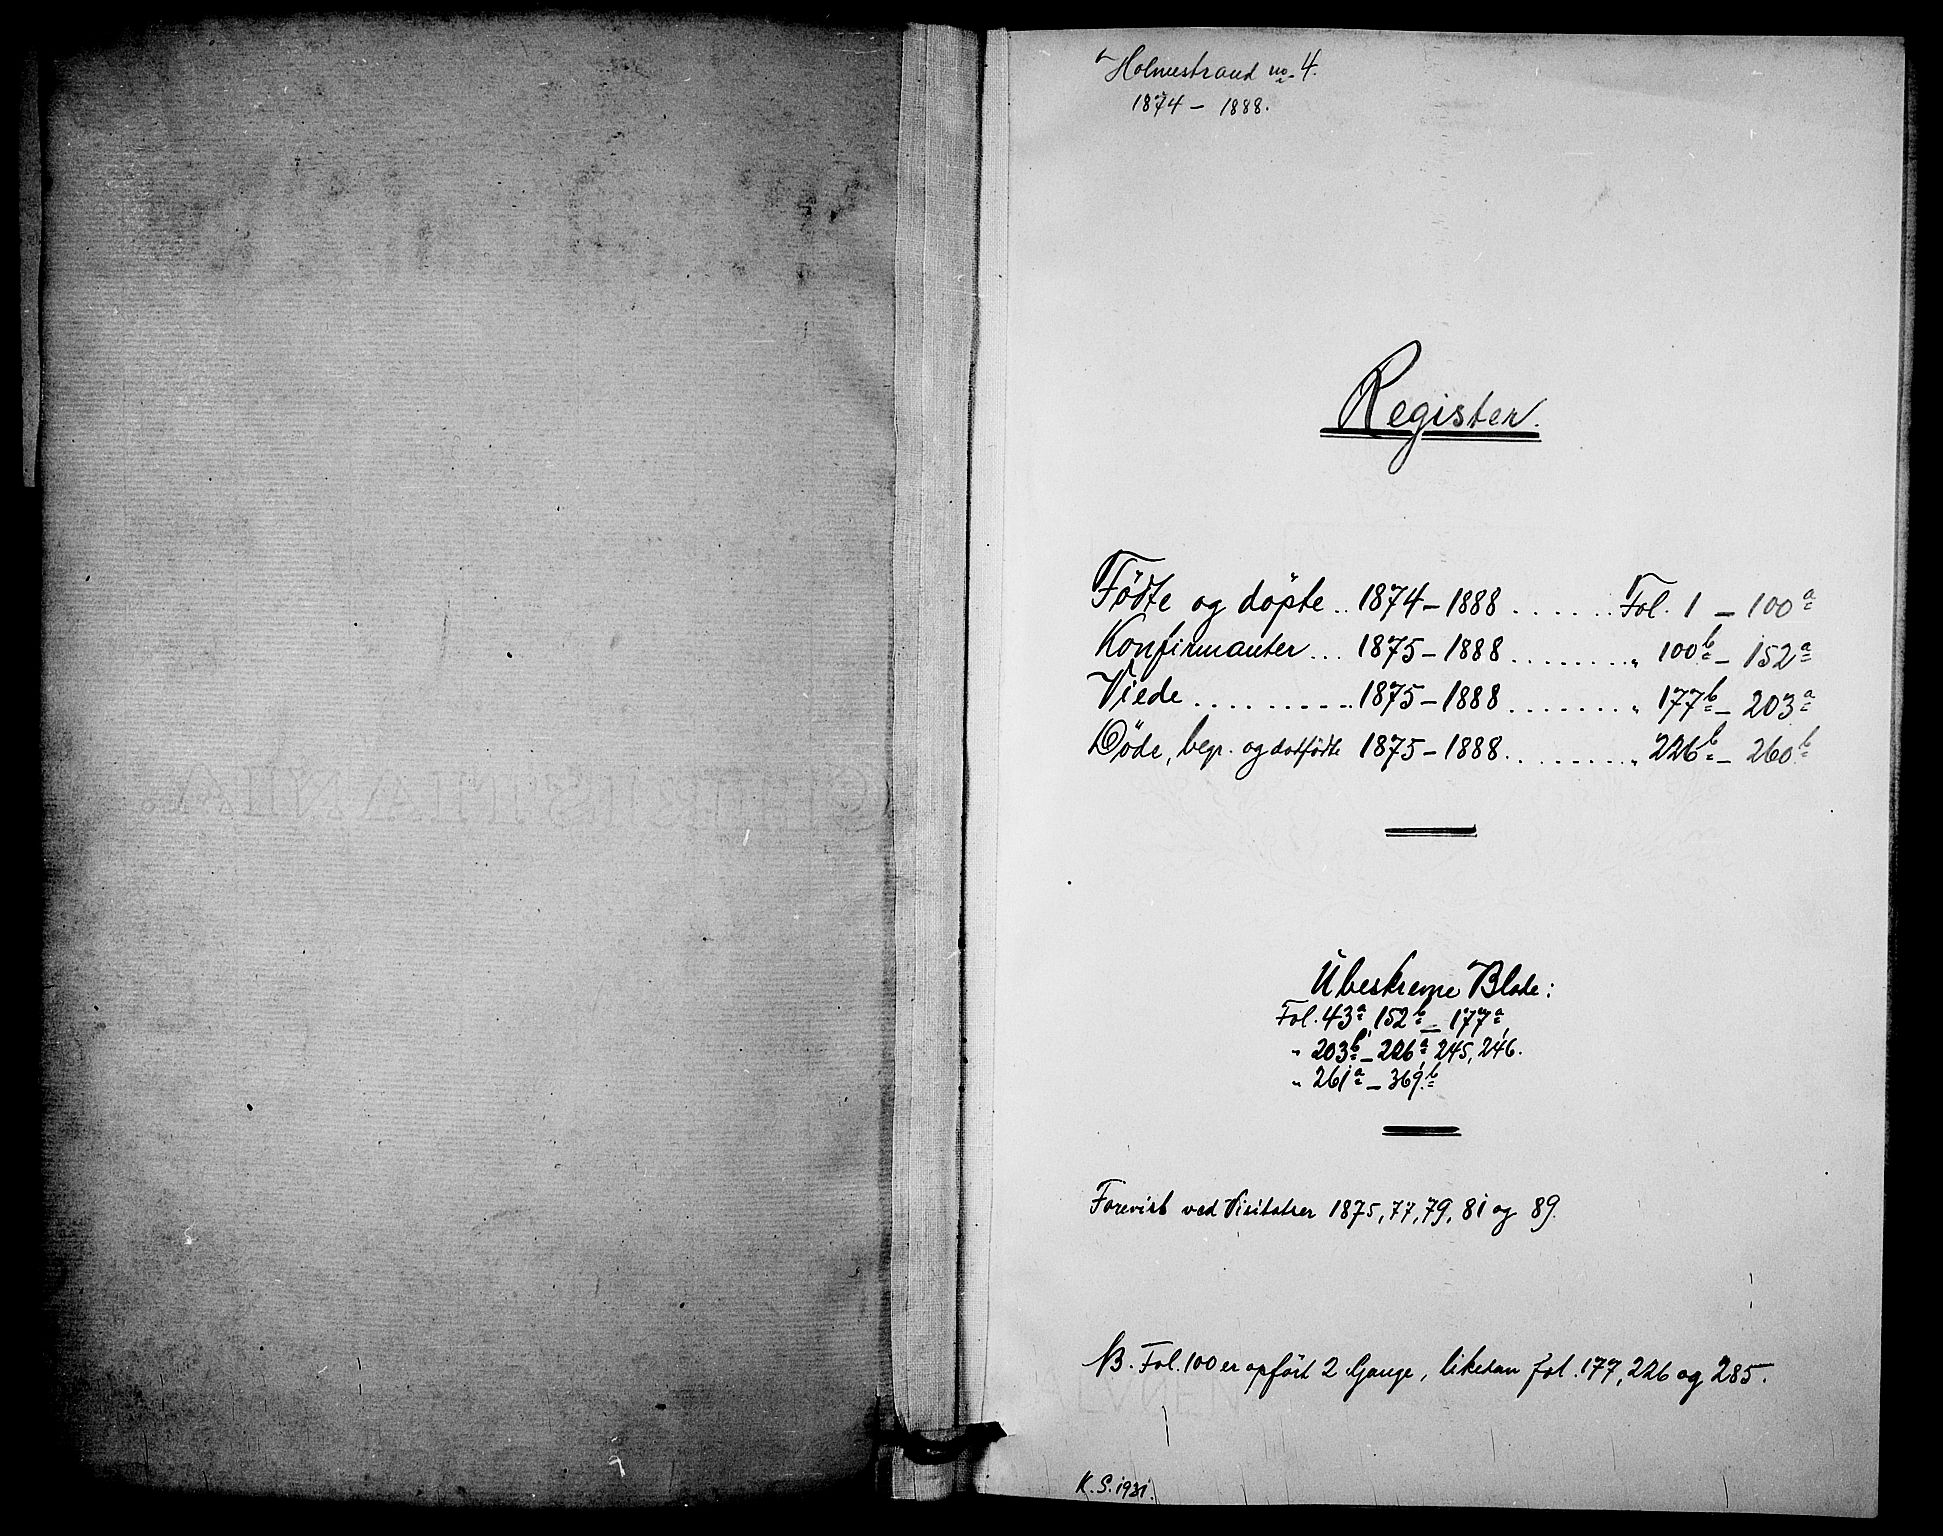 Holmestrand no. 4.
1874 – 1888.
Register.
Födte og döpte .. 1874 – 1888 ....... Fol. 1 – 100a
Konfirmanter ... 1875 – 1888 ........ „ 100b – 152a
Viede .......... 1875 – 1888 ........ „ 177b – 203a
Döde, begr. og dødfödte 1875 – 1888 ........ „ 226b – 260b
Ubeskrevne Blade:
Fol. 43a, 152b – 177a,
„ 203b – 226a, 245, 246.
„ 261a – 369b
CHRISTIANIA.
Forevist ved Visitatser 1875, 77, 79, 81 og 89.
NB. Fol. 100 er opfört 2 Gange, likesaa fol. 177, 226 og 285.
K. S. 1931.